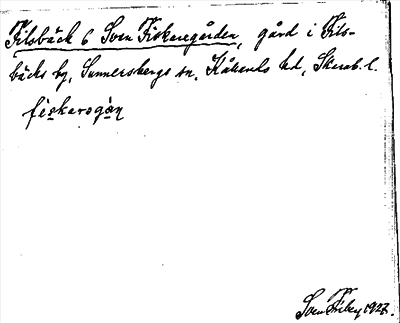 Filsbäck 6 Sven Fiskaregården, gård i Fils-
bäcks by, Sunnersbergs sn, Kållands hd, Skarab. l.
fiskarsgån
Sven Fribeg 1927.